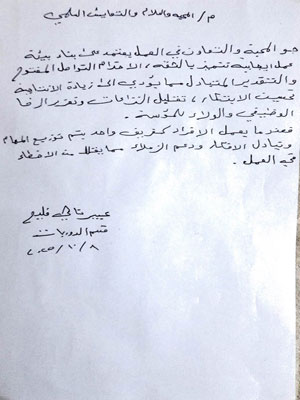 م / المحبة والسلام والتعايش السلمي
جو المحبة والتعاون في العمل يعتمد على بناء بيئة
عمل ايجابية تتميز بالثقة، الاحترام التواصل المفتوح
والتقدير المتبادل مما يؤدي الى زيادة الانتاجية
تحسين الابتكار، تقليل النزاعات وتعزيز الرضا
الوظيفي والولاء للمؤسسة.
فعندما يعمل الافراد كفريق واحد يتم توزيع المهام
وتبادل الافكار ودعم الزملاء مما يقلل من الاخطاء
في العمل.
عبير فليح
قسم الدوريات
٢٠٢٥/١٠/٨